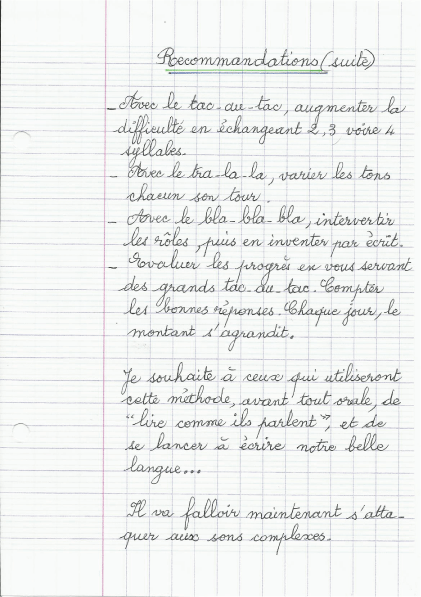 Recommandations (suite)
- Avec le tac-au-tac, augmenter la
difficulté en échangeant 2, 3 voire 4
syllabes.
- Avec le tra-la-la, varier les tons
chacun son tour.
- Avec le bla-bla-bla, intervertir
les rôles, puis en inventer par écrit.
- Evaluer les progrès en vous servant
des grands tac-au-tac. Compter
les bonnes réponses. Chaque jour, le
montant s'agrandit.
Je souhaite à ceux qui utiliseront
cette méthode, avant tout orale, de
"lire comme ils parlent", et de
se lancer à écrire notre belle
langue...
Il va falloir maintenant s'atta-
quer aux sons complexes.